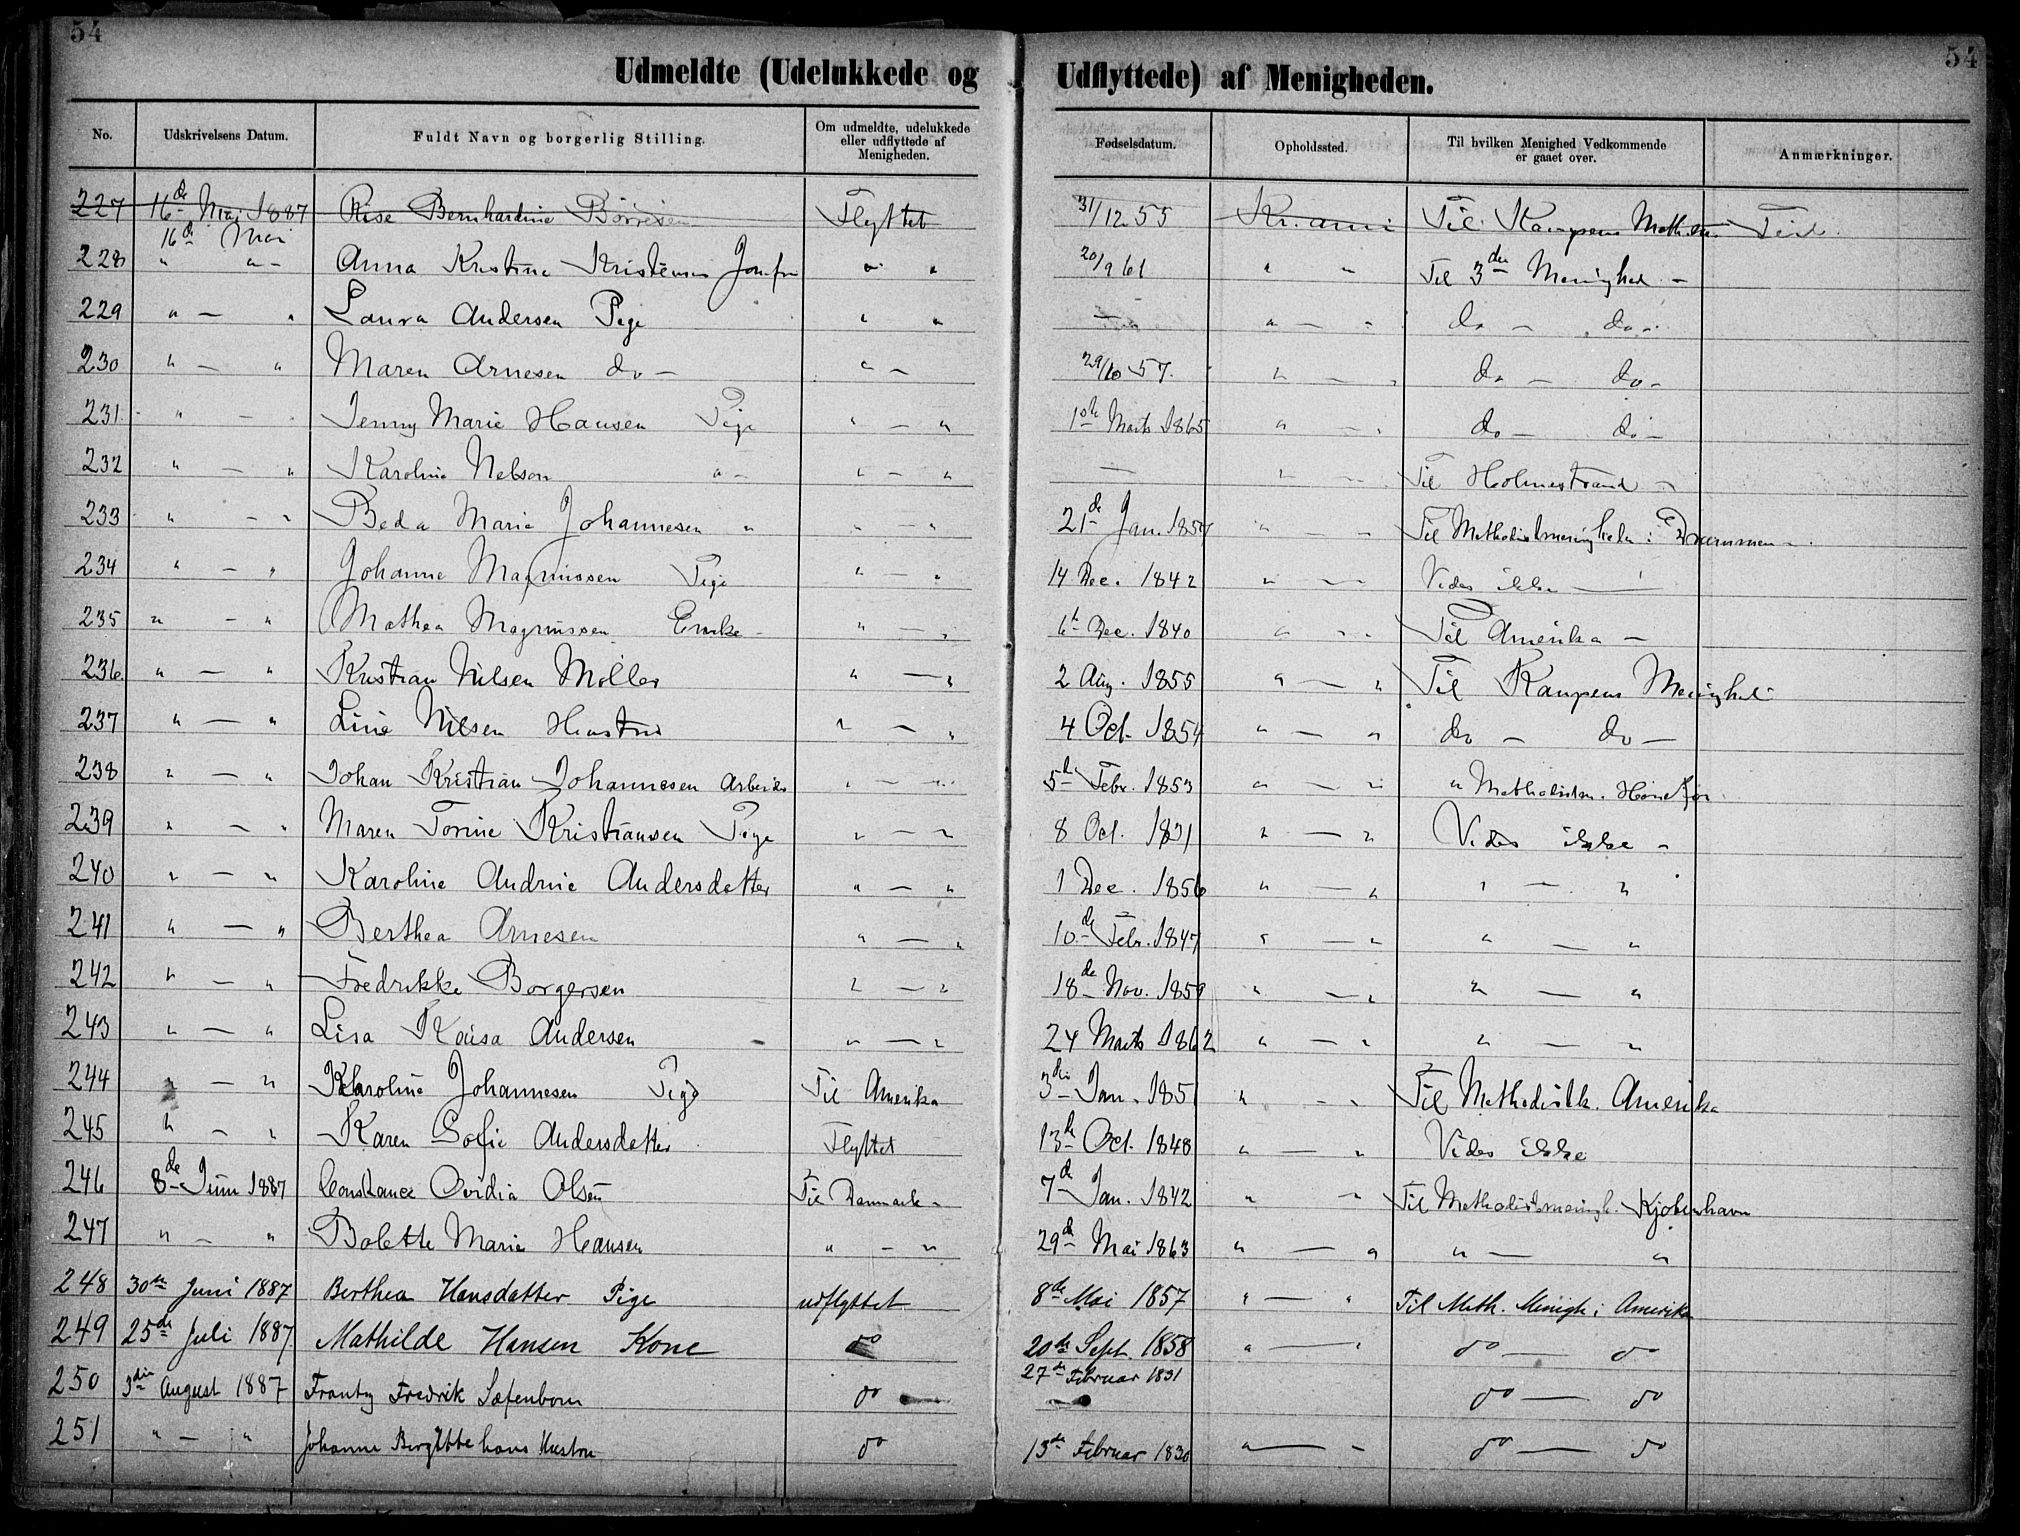 54
54
Udmeldte (Udelukkede og Udflyttede) af Menigheden.
No. Udskrivelsens Datum. Fuldt Navn og borgerlig Stilling. Om udmeldte, udelukkede eller udflyttede af Menigheden. Fødselsdatum. Opholdssted. Til hvilken Menighed Vedkommende er gaaet over. Anmærkninger.
227 16de Mai 1887 Bernhardine Børresen Flyttet 31/12 55 Kr.ania Til Kampens Meth.
16de Mai
228 " " - Anna Kristine Kristensen " " 20/9 61 " " Til 3die Menighed -
229 " - " Laura Andersen Pige " " — " - " do - do -
230 " - " Maren Arnesen do - " - 29/10 57. " - " do - do -
231 " - Jenny Marie Hansen Pige " - " 1ste Marts 1865 " - " do - do -
232 " - " Karoline Nelson " - " - " — " - " Til Holmestrand -
233 " - " Beda Marie Johannesen " " - " 21de Jan. 1857 " - - Til Methodistmenigheden i Drammen -
234 " - " Johanne Magnussen Pige " - " 14 Dec. 1842 " - - Vides ikke —
235 " - " Mathea Magnussen Enke - " - " 6te Dec. 1840 " - - Til Amerika -
236 " - " Kristian Nilsen Møller " - " 2 Aug. 1855 " - " Til Kampens Menighed
237 " - " Line Nilsen Hustru " - " 4 Oct. 1854 " - " do - do -
238 " - " Johan Kristian Johannesen Arbeider " - " 5te Febr. 1853 " - " " Methodistm. Hønefos
239 " - " Maren Torine Kristiansen Pige " - " 8 Oct. 1831 " - " Vides ikke -
240 " - " Karoline Andrine Andersdatter " - " 1 Dec. 1856 " - " " - "
241 " - " Berthea Arnesen " - " 10de Febr. 1847 " - " " - "
242 " - " Fredrikke Borgersen " - " 18de Nov. 1859 " - " " - "
243 " - " Lisa Andersen " - " 24 Marts 1862 " - " " - "
244 " - " Karoline Johannesen Pige Til Amerika 3die Jan. 1851 " - " Til Methodistk. Amerika
245 " - " Karen Sofie Andersdatter Flyttet 13de Oct. 1848 " - " Vides ikke
246 8de Juni 1887 Constance Ovidia Olsen Til Danmark - 7de Jan. 1842 " - " Til Methodistmenigh. Kjøbenhavn
247 " - " Bolette Marie Hansen " - " 29de Mai 1863 " - " " - "
248 30te Juni 1887 Berthea Hansdatter Pige udflyttet 8de Mai 1857 " - " Til Meth. Menigh i Amerika
249 25de Juli 1887. Mathilde Hansen Kone do 20de Sept. 1858 " - " do — do
250 3die August 1887 Frantz Fredrik do 27de Februar 1831 do — do
251 " - " Johanne Bergitte hans Hustru do 13de Februar 1830 " - " do — do